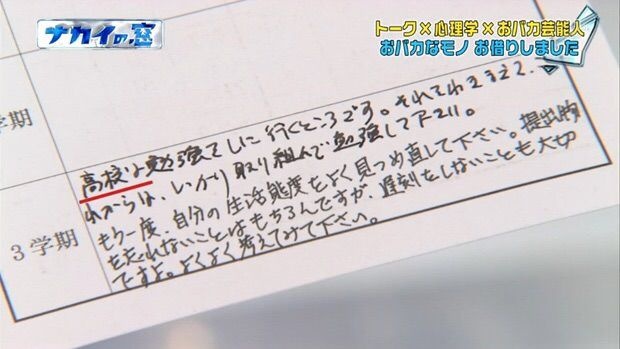 ナカイの窓
トーク×心理学×おバカ芸能人
おバカなモノ お借りしました
学期
高校は勉強をしに行くところです。それをわきまえて、
れからは、しっかり取り組んで勉強して下さい。
もう一度、自分の生活態度をよく見つめ直して下さい。提出物
を忘れないことはもちろんですが、遅刻をしないことも大切
ですよ。よくよく考えてみて下さい。
3学期